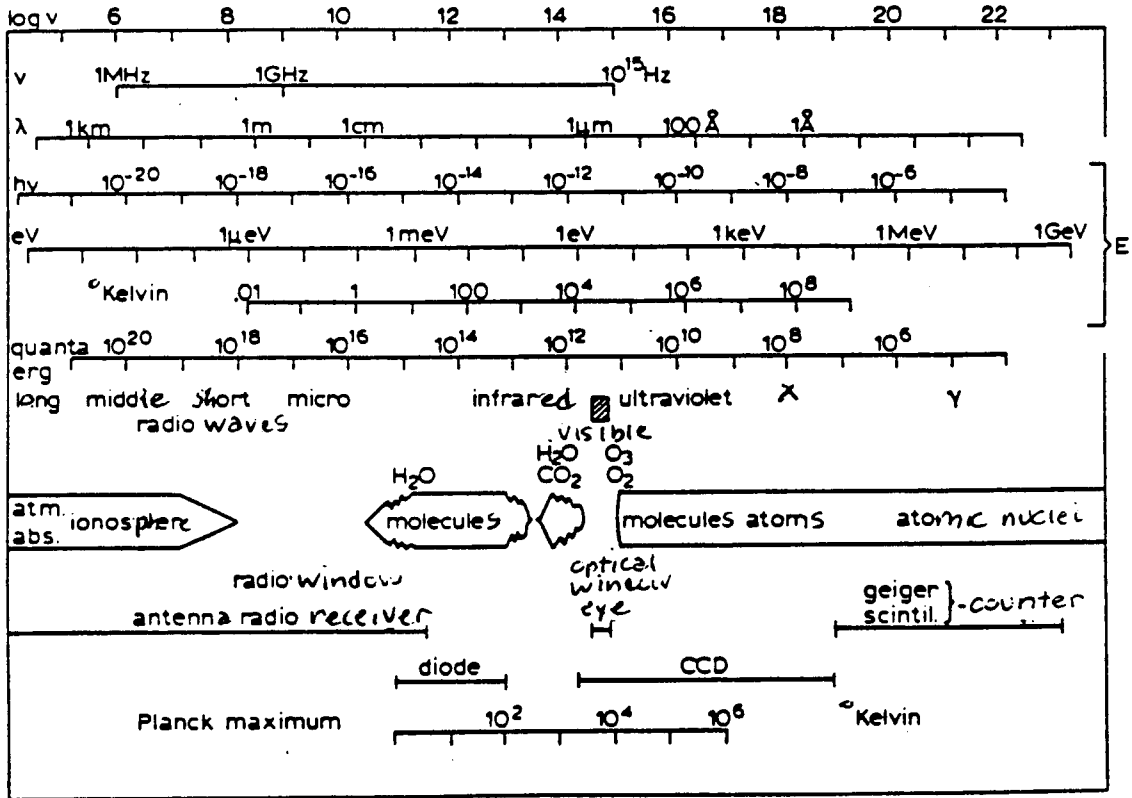 log ν 6 8 10 12 14 16 18 20 22
ν 1MHz 1GHz 10¹⁵Hz
λ 1km 1m 1cm 1μm 100Å 1Å
hν 10⁻²⁰ 10⁻¹⁸ 10⁻¹⁶ 10⁻¹⁴ 10⁻¹² 10⁻¹⁰ 10⁻⁸ 10⁻⁶
eV 1μeV 1meV 1eV 1keV 1MeV 1GeV E
°Kelvin .01 1 100 10⁴ 10⁶ 10⁸
quanta 10²⁰ 10¹⁸ 10¹⁶ 10¹⁴ 10¹² 10¹⁰ 10⁸ 10⁶
erg
long middle short micro infrared ultraviolet X γ
radio waves
visible
H₂O O₃
H₂O CO₂ O₂
atm. ionosphere molecules molecules atoms atomic nuclei
abs.
radio window optical
eye
antenna radio receiver
geiger
scintil. -counter
diode CCD
Planck maximum 10² 10⁴ 10⁶ °Kelvin